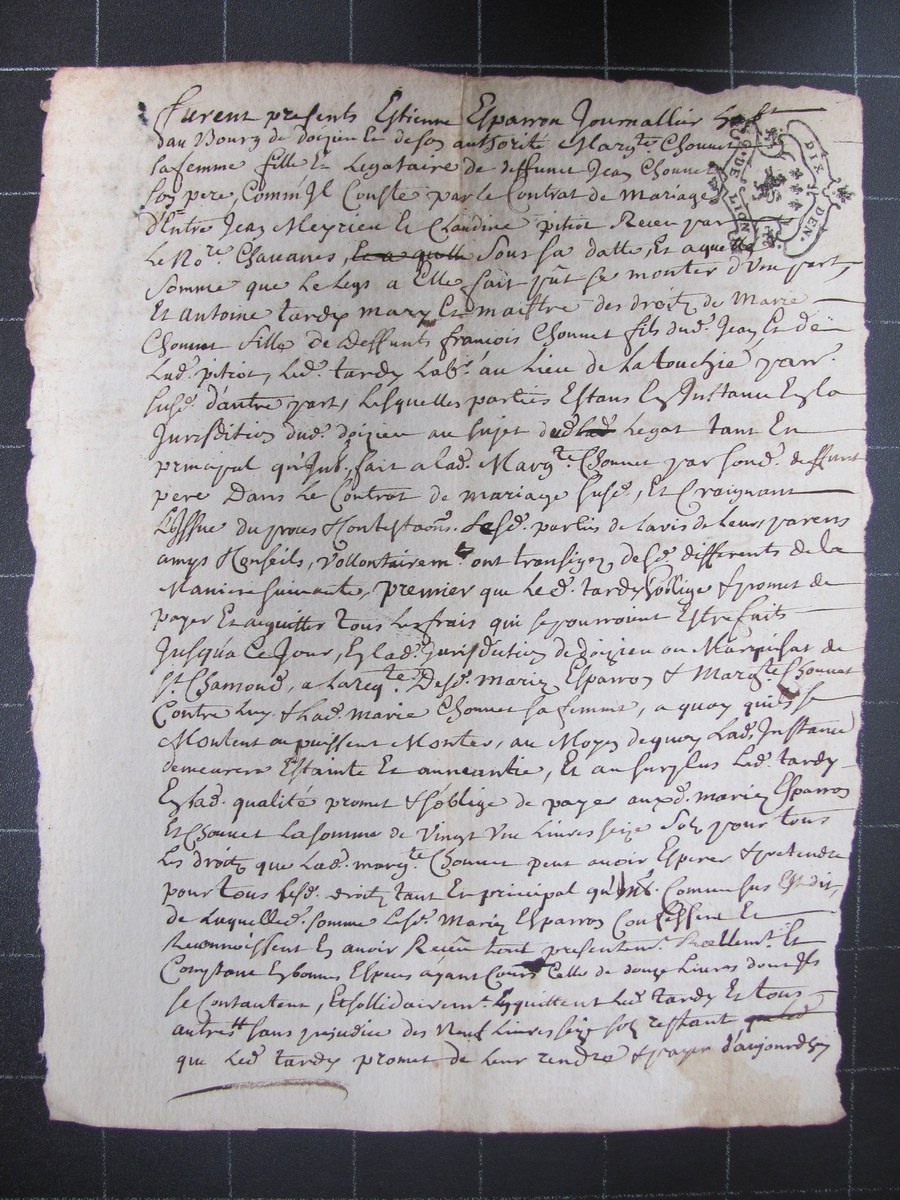 furent presents Estienne Esparron Journallier
dau Bourg de doizieu Et de son authorité Margte. Chonnet
sa femme fille Et Legataire de deffunct Jean Chonnet
son pere, Comm'Il Conste par le Contrat de Mariage
d'Entre Jean Meyrieu Et Claudine pitiot Receu par
Le Nore. Chavanes, Sous sa datte, Et a quelle
somme que Le Legs a Elle fait put se monter d'Une part,
Et Antoine tardy mary Et maistre des droitz de Marie
Chonnet fille de deffunts francois Chonnet fils dud. Jean Et de
Lad. pitiot, Led. tardy Labr. au Lieu de La touchie, parr.
susd. d'autre part, Lesquelles parties Estans En Instance En la
Jurisdition dud. doizieu au sujet dud. Legat tant En
principal qu'Int. fait a lad. Margte. Chonnet par sond. deffunt
pere Dans Le Contrat de mariage susd., Et Craignant
L'Issue du proces & Contestaons. Lesd. parties de l'avis de leurs parens
amys & Conseils, Vollontairemt. ont transigez desd. differents de la
Maniere suivante, premier que Led. tardy s'oblige & promet de
payer Et acquitter tous Les frais qui se pourroient Estre faits
Jusqu'a Ce Jour, En lad. Jurisdiction de doizieu ou Marquisat de
St. Chamond, a La reqte. Desd. mariez Esparron & Margte. Chonnet
Contre Luy & Lad. marie Chonnet sa femme, a quoy qu'ils se
Montent ou puissent Monter, au Moyen de quoy Lad. Instance
demeurera Estainte Et anneantie, Et au surplus Led. tardy
En lad. qualité promet & s'oblige de payer auxd. mariez Esparron
Et Chonnet La somme de Vingt Une Livres seize Solz pour tous
Les droitz que Lad. margte. Chonnet peut avoir Esperer & pretendre
pour tous lesd. droitz tant En principal qu'Int. Comme sus Est dit,
de Laquelle d. somme Lesd. Mariez Esparron Confessent Et
Reconnoissent En avoir Receu tout presentemt. Reellemt. Et
Comptant En bonnes Especes ayant Cours Celle de douze Livres dont Ils
se Contantent, Et sollidairemt. En quittent Led. tardy Et tous
autres sans prejudice des Neuf Livres seize solz restant
que Led. tardy promet de Leur rendre & payer d'aujourd'huy
DIX DEN.